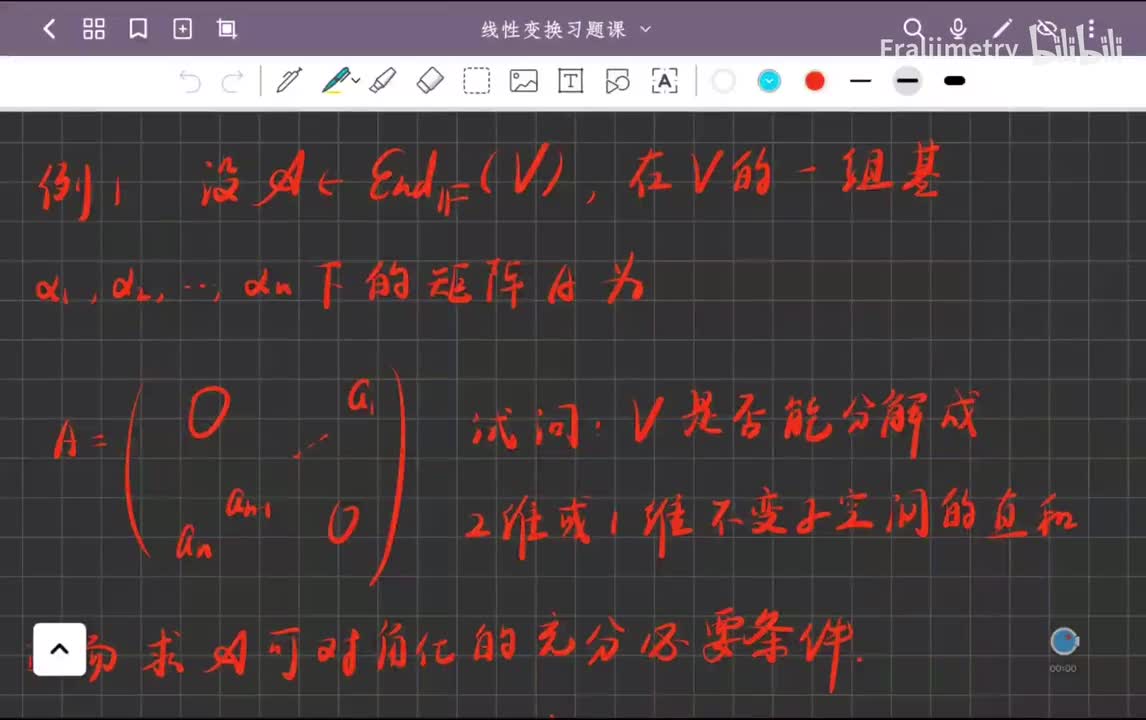 线性变换习题课
Fraljimetry bilibili
例1 设 𝒜 ∈ End_𝔽(V), 在V的一组基
α₁, α₂, …, αₙ 下的矩阵A为
A = ( 0 a₁ ⋰ aₙ₋₁ aₙ 0 ) 试问: V是否能分解成
2维或1维不变子空间的直和
求 𝒜 可对角化的充分必要条件.
00:00